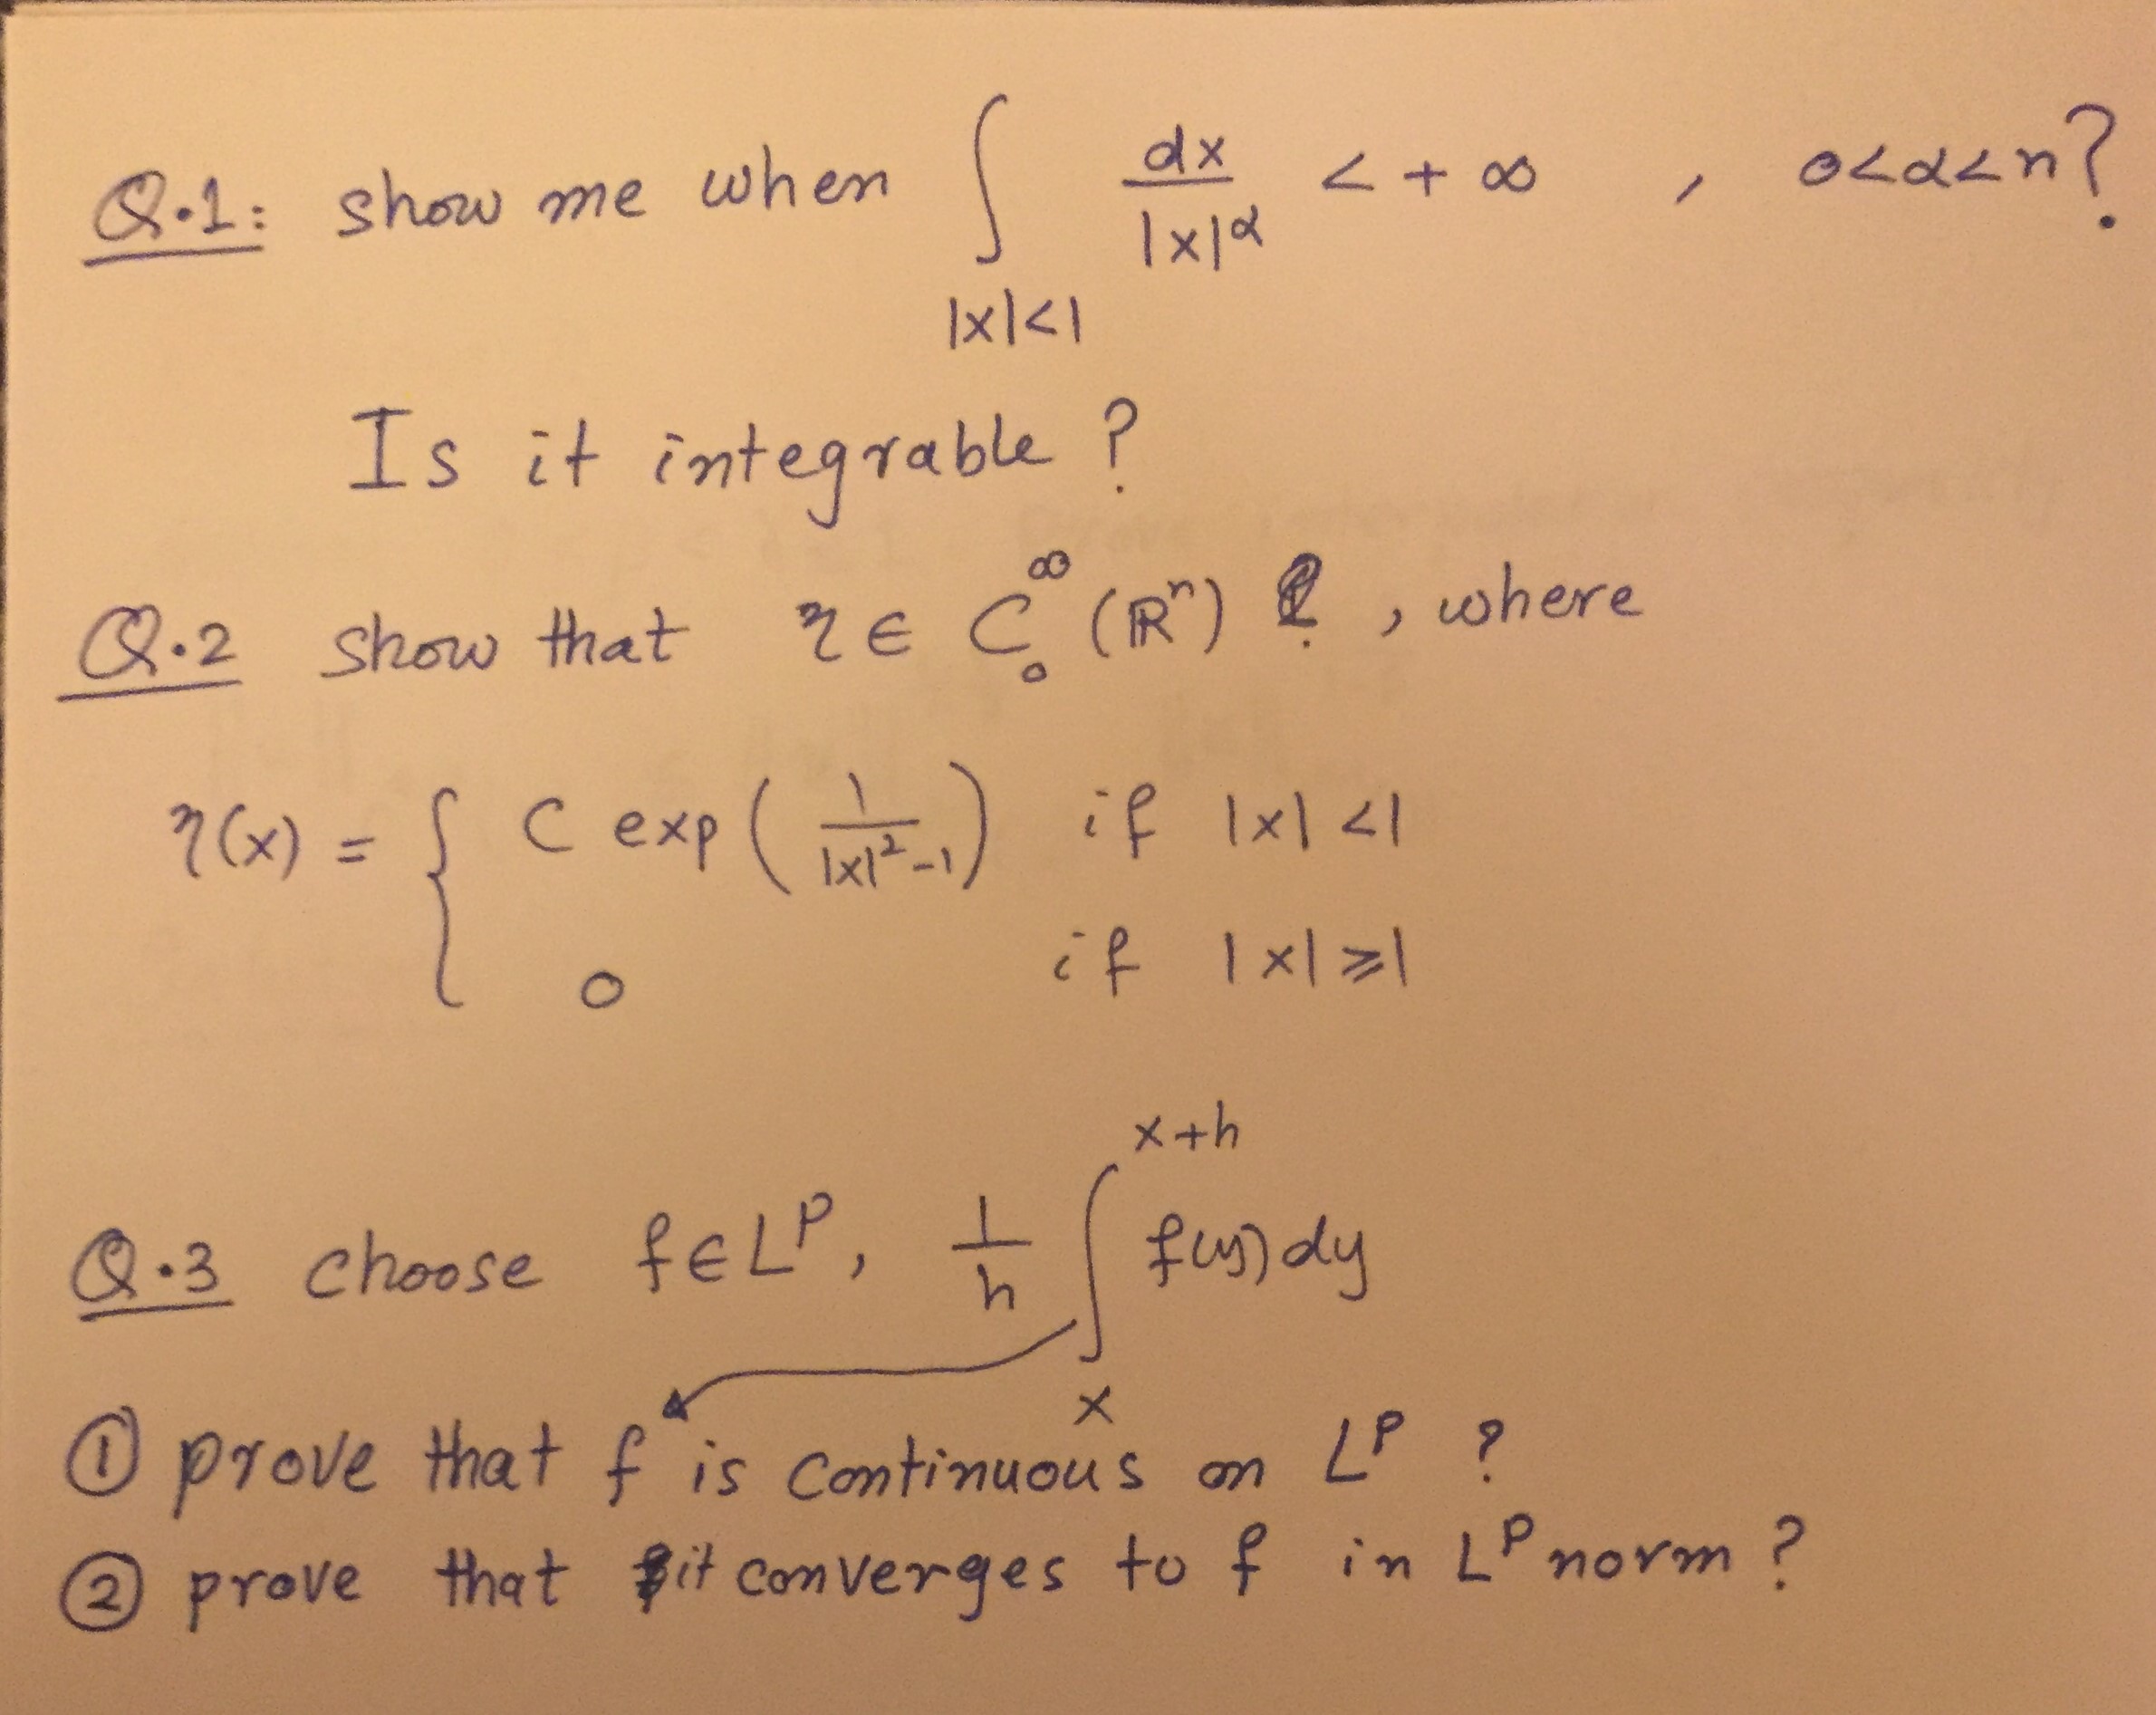 Q.1: show me when ∫_{|x|<1} dx/|x|^α < +∞ , 0<α<n?
Is it integrable ?
Q.2 show that η ∈ C_0^∞ (ℝⁿ) , where
η(x) = { C exp ( 1/(|x|²-1) ) if |x| <1
0 if |x| ≥1
Q.3 choose f ∈ L^p, 1/h ∫_x^{x+h} f(y) dy
① prove that f is continuous on L^p ?
② prove that it converges to f in L^p norm ?